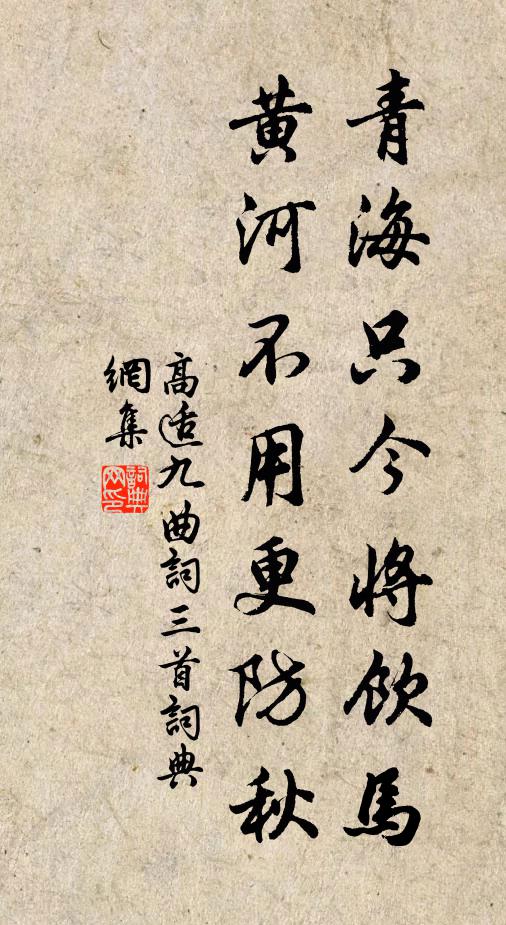 青海只今將飲馬
黄河不用更防秋
高适九曲詞三首詞典
網集
詞典
网印